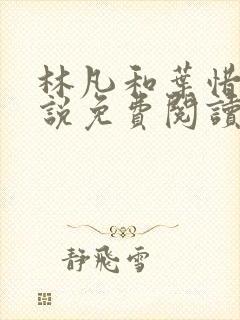 林凡和葉惜
說免費閱讀
靜飛雪